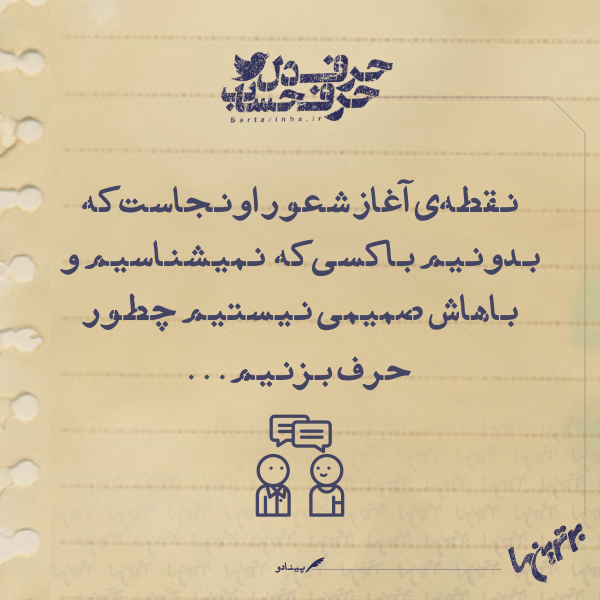 حرف دل
حرف حساب
Bartarinha.ir
نقطه‌ی آغاز شعور اونجاست که
بدونیم با کسی که نمیشناسیم و
باهاش صمیمی نیستیم چطور
حرف بزنیم...
پینادو
برترین‌ها